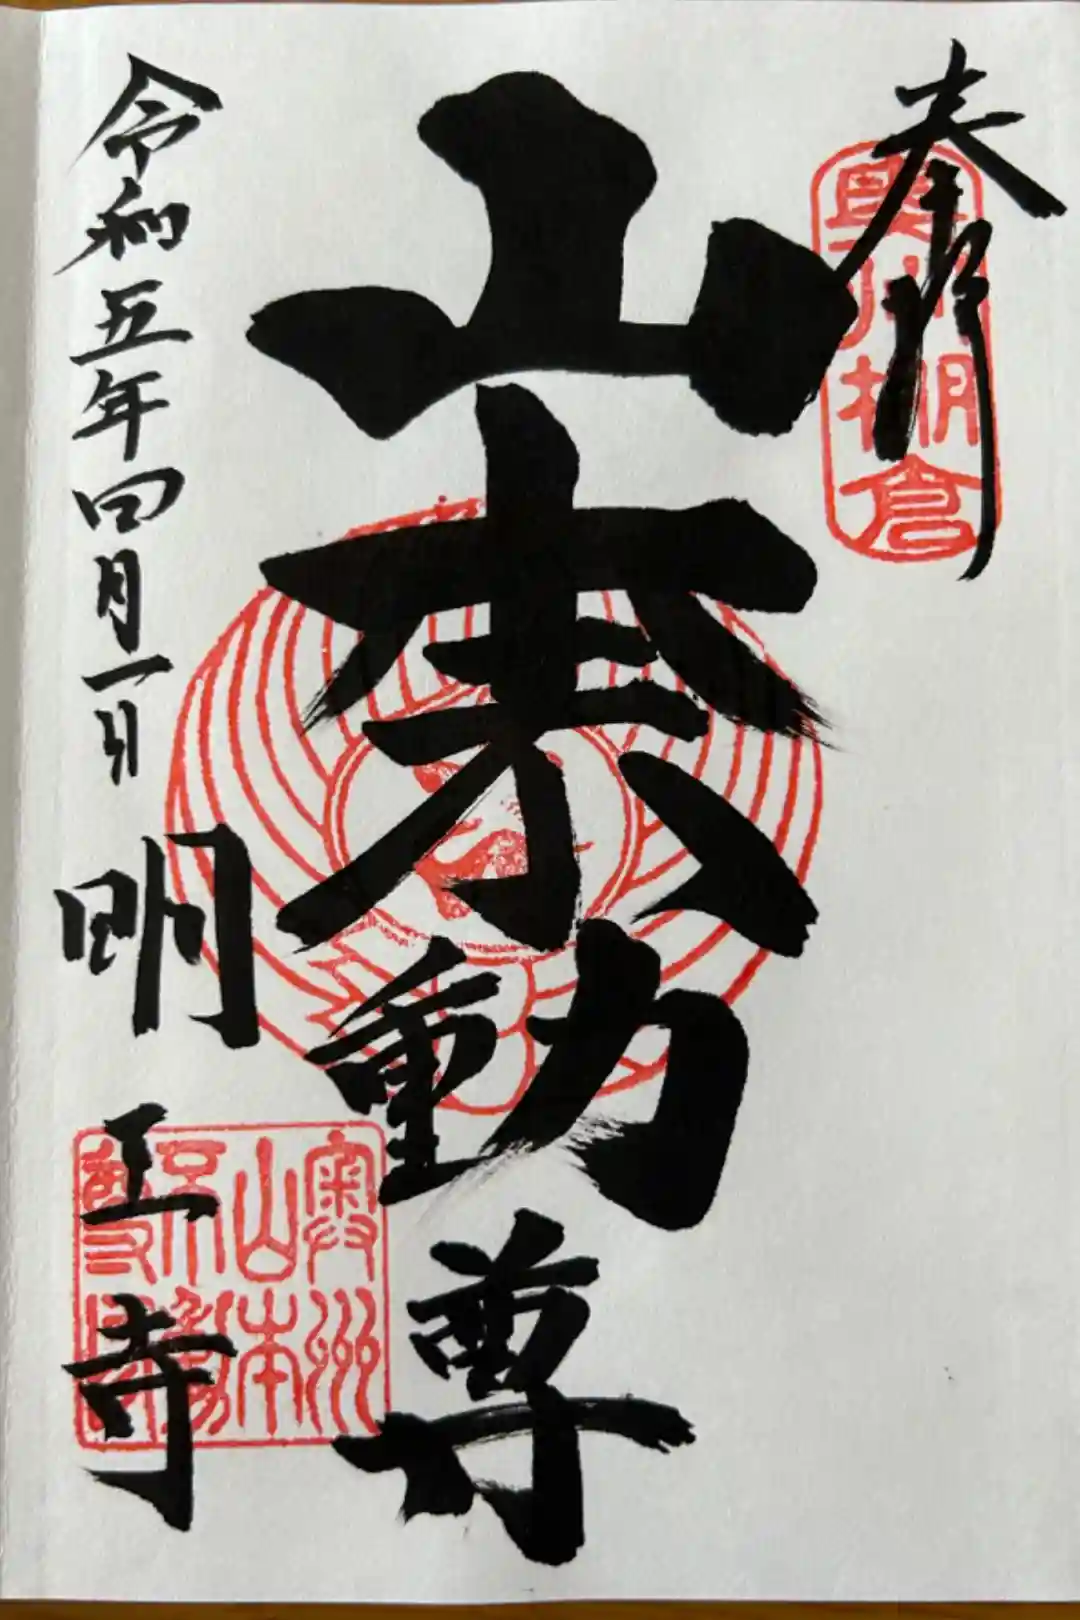 奉拝
奥州棚倉
山本不動尊
令和五年四月一日
明王寺
奥州
山本
不動
尊印